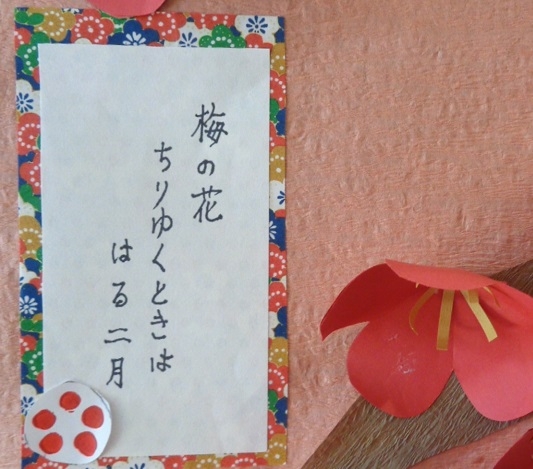 梅の花
ちりゆくときは
はる二月